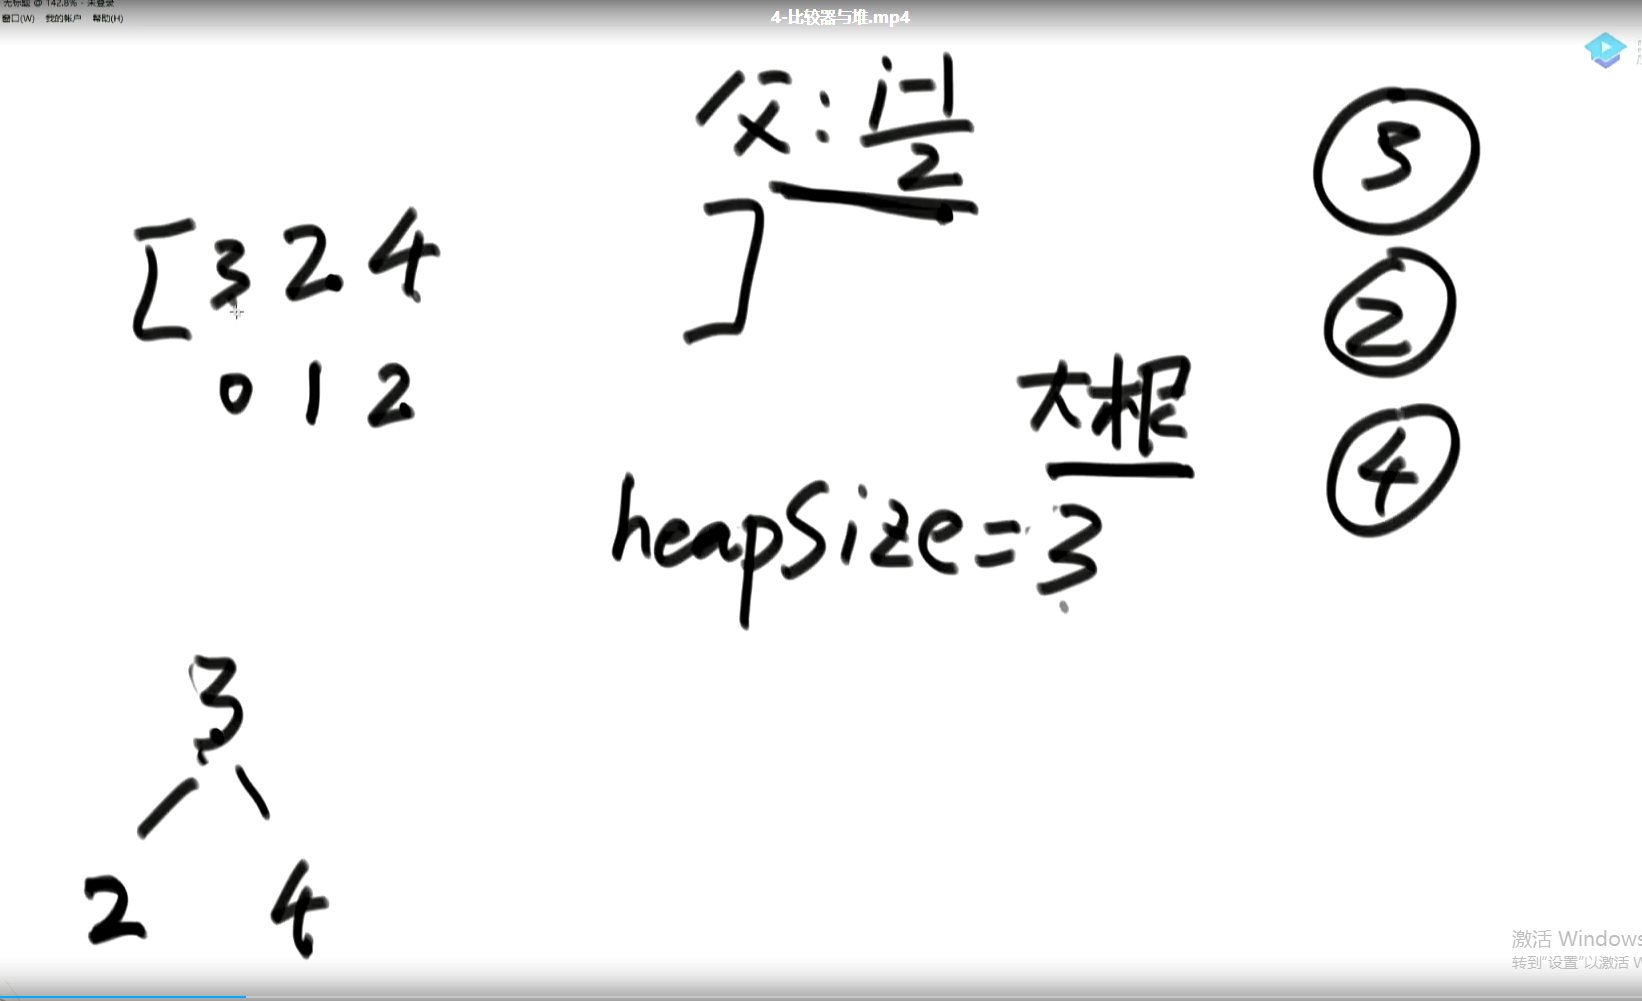 无标题 @ 142.8% - 未登录
窗口(W) 我的帐户 帮助(H)
4-比较器与堆.mp4
父: i-1
2
[ 3 2 4 ]
0 1 2
大根
heapSize=3
5
2
4
3
2 4
激活 Windows
转到"设置"以激活 W